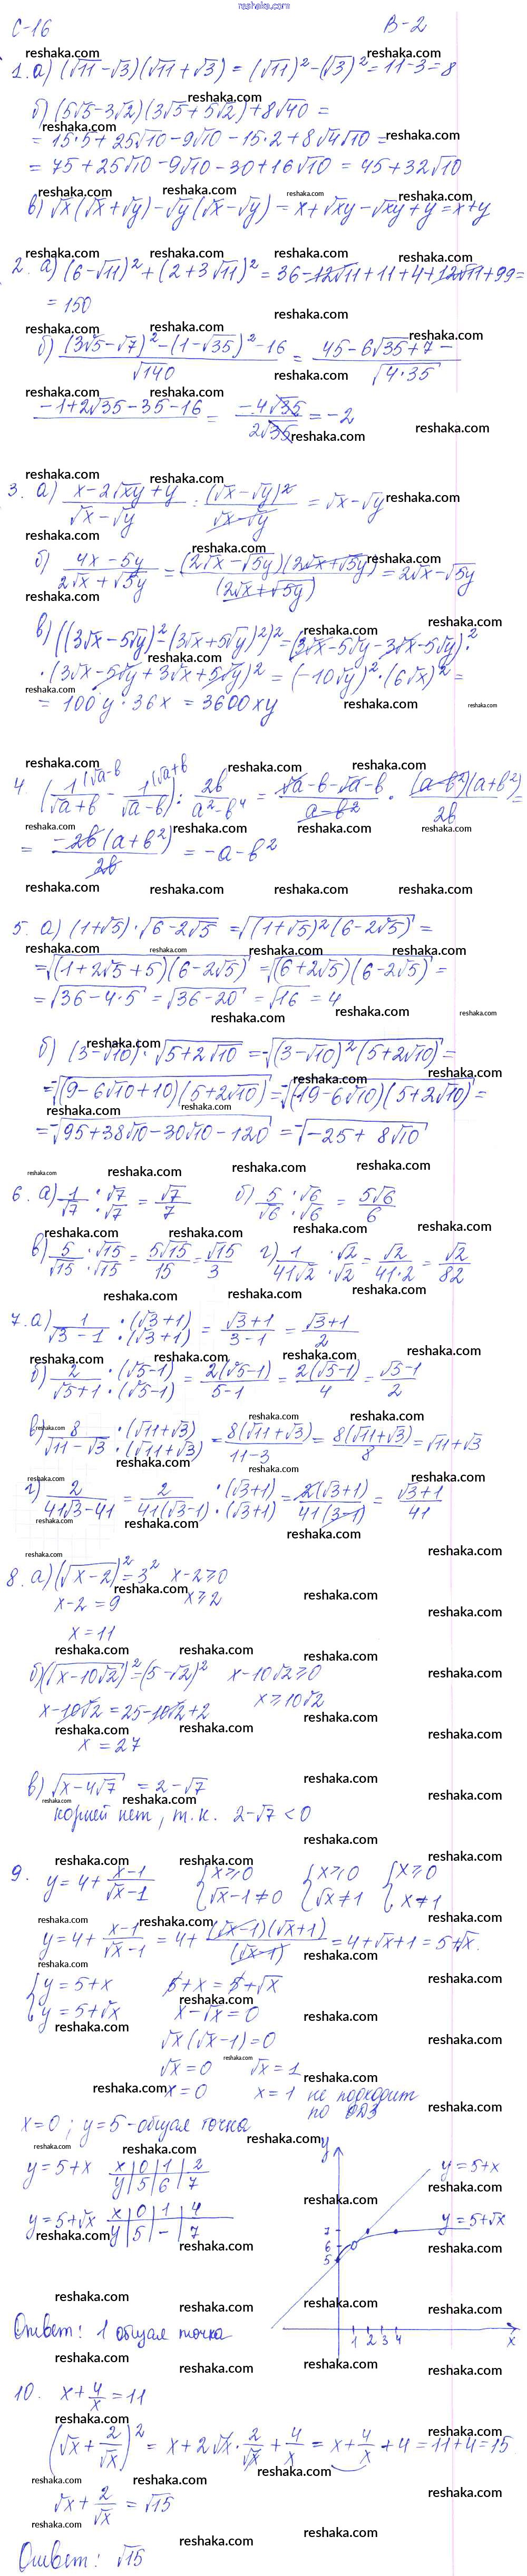 reshaka.com
С-16 В-2
1. а) (√11 - √3)(√11 + √3) = (√11)² - (√3)² = 11 - 3 = 8
б) (5√5 - 3√2)(3√5 + 5√2) + 8√40 =
= 15·5 + 25√10 - 9√10 - 15·2 + 8√4√10 =
= 75 + 25√10 - 9√10 - 30 + 16√10 = 45 + 32√10
в) √x(√x + √y) - √y(√x - √y) = x + √xy - √xy + y = x + y
2. а) (6 - √11)² + (2 + 3√11)² = 36 - 12√11 + 11 + 4 + 12√11 + 99 =
= 150
б) ((3√5 - √7)² - (1 - √35)² - 16)/√140 = (45 - 6√35 + 7 -
- 1 + 2√35 - 35 - 16)/√(4·35) = (-4√35)/(2√35) = -2
3. а) (x - 2√xy + y)/(√x - √y) = (√x - √y)²/(√x - √y) = √x - √y
б) (4x - 5y)/(2√x + √5y) = (2√x - √5y)(2√x + √5y)/(2√x + √5y) = 2√x - √5y
в) ((3√x - 5√y)² (3√x + 5√y)²)² = (3√x - 5√y - 3√x - 5√y)² ·
· (3√x - 5√y + 3√x + 5√y)² = (-10√y)² · (6√x)² =
= 100y · 36x = 3600xy
4. (1/(√a + b) - 1/(√a - b)) : 2b/(a² - b⁴) = (√a - b - √a - b)/(a - b²) · (a - b²)(a + b²)/2b =
= -2b(a + b²)/2b = -a - b²
5. а) (1 + √5) · √(6 - 2√5) = √((1 + √5)² (6 - 2√5)) =
= √((1 + 2√5 + 5)(6 - 2√5)) = √((6 + 2√5)(6 - 2√5)) =
= √(36 - 4·5) = √(36 - 20) = √16 = 4
б) (3 - √10) · √(5 + 2√10) = -√((3 - √10)² (5 + 2√10)) =
= -√((9 - 6√10 + 10)(5 + 2√10)) = -√((19 - 6√10)(5 + 2√10)) =
= -√(95 + 38√10 - 30√10 - 120) = -√(-25 + 8√10)
6. а) 1/√7 · √7/√7 = √7/7 б) 5/√6 · √6/√6 = 5√6/6
в) 5/√15 · √15/√15 = 5√15/15 = √15/3 г) 1/41√2 · √2/√2 = √2/(41·2) = √2/82
7. а) 1/(√3 - 1) · (√3 + 1)/(√3 + 1) = (√3 + 1)/(3 - 1) = (√3 + 1)/2
б) 2/(√5 + 1) · (√5 - 1)/(√5 - 1) = 2(√5 - 1)/(5 - 1) = 2(√5 - 1)/4 = (√5 - 1)/2
в) 8/(√11 - √3) · (√11 + √3)/(√11 + √3) = 8(√11 + √3)/(11 - 3) = 8(√11 + √3)/8 = √11 + √3
г) 2/(41√3 - 41) = 2/(41(√3 - 1)) · (√3 + 1)/(√3 + 1) = 2(√3 + 1)/(41(3 - 1)) = (√3 + 1)/41
8. а) (√(x - 2))² = 3² x - 2 ≥ 0
x - 2 = 9 x ≥ 2
x = 11
б) (√(x - 10√2))² = (5 - √2)² x - 10√2 ≥ 0
x - 10√2 = 25 - 10√2 + 2 x ≥ 10√2
x = 27
в) √(x - 4√7) = 2 - √7
корней нет, т.к. 2 - √7 < 0
9. y = 4 + (x - 1)/(√x - 1) { x ≥ 0 { x ≥ 0 { x ≥ 0
√x - 1 ≠ 0 √x ≠ 1 x ≠ 1
y = 4 + (x - 1)/(√x - 1) = 4 + (√x - 1)(√x + 1)/(√x - 1) = 4 + √x + 1 = 5 + √x.
{ y = 5 + x 5 + x = 5 + √x
y = 5 + √x x - √x = 0
√x(√x - 1) = 0
√x = 0 √x = 1
x = 0 x = 1 не подходит
по ОДЗ
x = 0; y = 5 - общая точка
y = 5 + x x | 0 | 1 | 2
y | 5 | 6 | 7
y = 5 + √x x | 0 | 1 | 4
y | 5 | - | 7
y
y = 5 + x
y = 5 + √x
7
6
5
1 2 3 4 x
Ответ: 1 общая точка
10. x + 4/x = 11
(√x + 2/√x)² = x + 2√x · 2/√x + 4/x = x + 4/x + 4 = 11 + 4 = 15
√x + 2/√x = √15
Ответ: √15